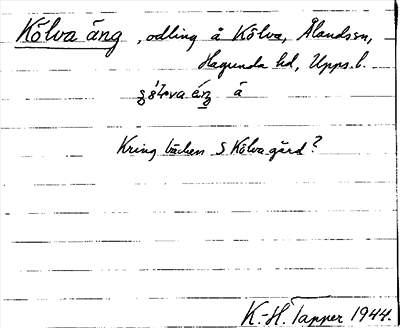 Kölva äng, odling å Kölva, Ålandssn,
Hagunda hd, Upps. l.
å
Kring bäcken S Kölva gård?
K.-H. Tapper 1944.